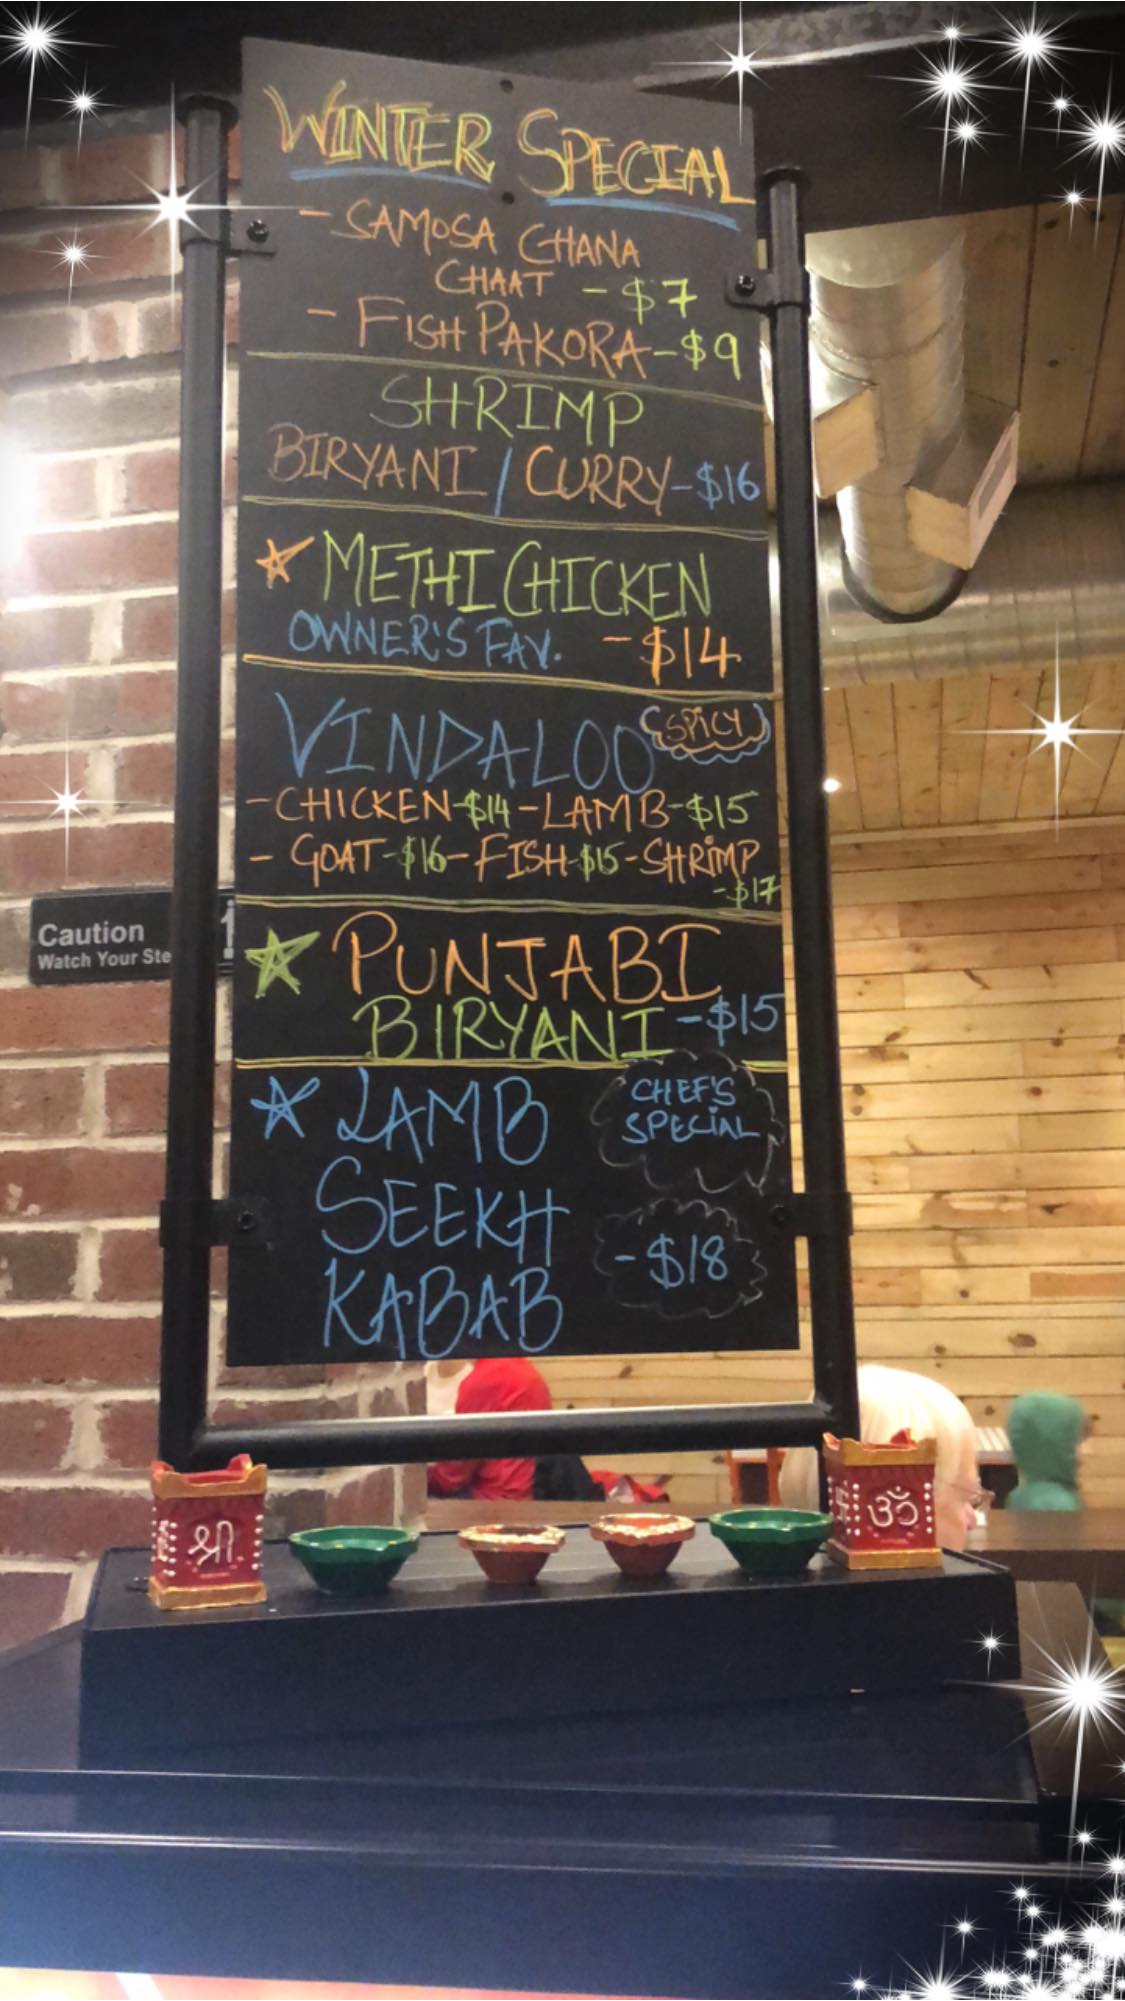 WINTER SPECIAL
- SAMOSA CHANA
CHAAT - $7
- FISH PAKORA - $9
SHRIMP
BIRYANI / CURRY - $16
METHI CHICKEN
OWNER'S FAV. - $14
VINDALOO SPICY
- CHICKEN - $14 - LAMB - $15
- GOAT - $16 - FISH - $15 - SHRIMP
- $17
PUNJABI
BIRYANI - $15
LAMB
SEEKH
KABAB
CHEF'S
SPECIAL
- $18
Caution
Watch Your Ste
श्री
ॐ